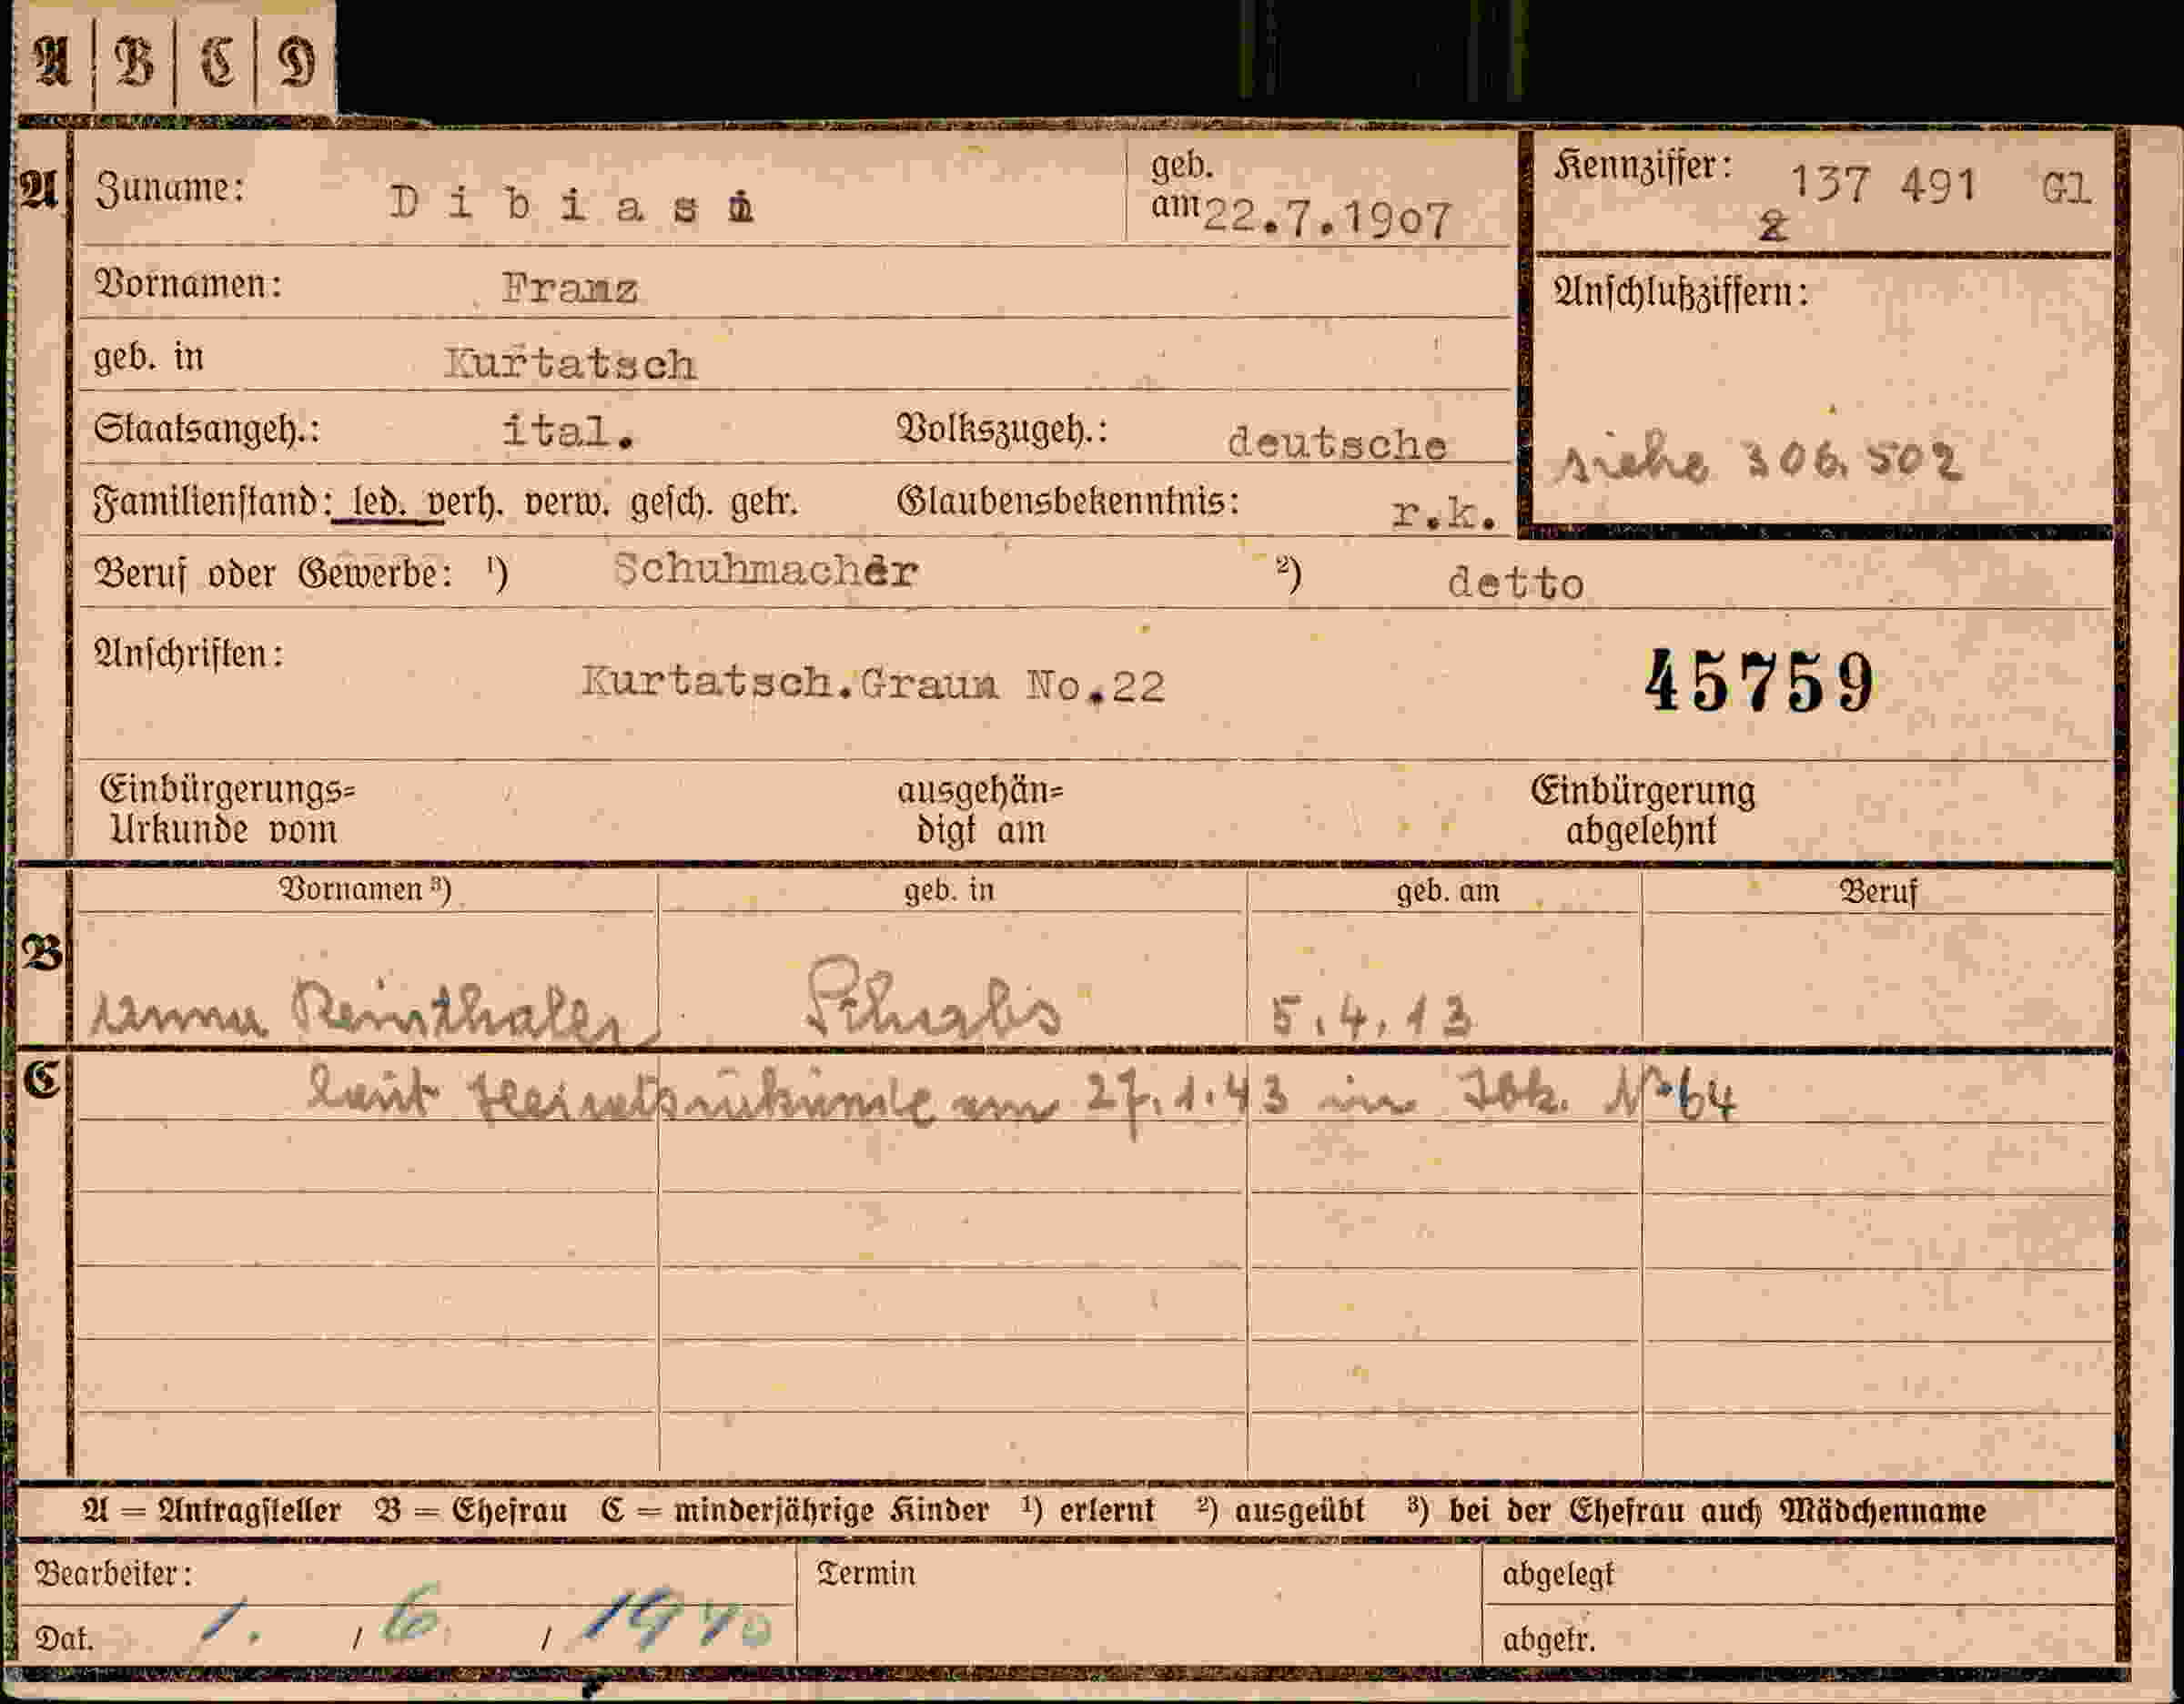 A B C D
A Zuname: Dibiasi geb. am 22.7.1907 Kennziffer: 137 491 Gl
2
Vornamen: Franz Anschlußziffern:
geb. in Kurtatsch
Staatsangeh.: ital. Volkszugeh.: deutsche siehe 306.502
Familienstand: led. verh. verw. gesch. getr. Glaubensbekenntnis: r.k.
Beruf oder Gewerbe: ¹) Schuhmacher ²) detto
Anschriften: Kurtatsch.Graun No.22 45759
Einbürgerungs= ausgehän= Einbürgerung
Urkunde vom digt am abgelehnt
Vornamen ³) geb. in geb. am Beruf
B Anna Reinthaler 5.4.13
C laut Heiratsurkunde am 27.1.43 in Ibk. No 64
A = Antragsteller B = Ehefrau C = minderjährige Kinder ¹) erlernt ²) ausgeübt ³) bei der Ehefrau auch Mädchenname
Bearbeiter: Termin abgelegt
Dat. 1. / 6. / 1940 abgetr.